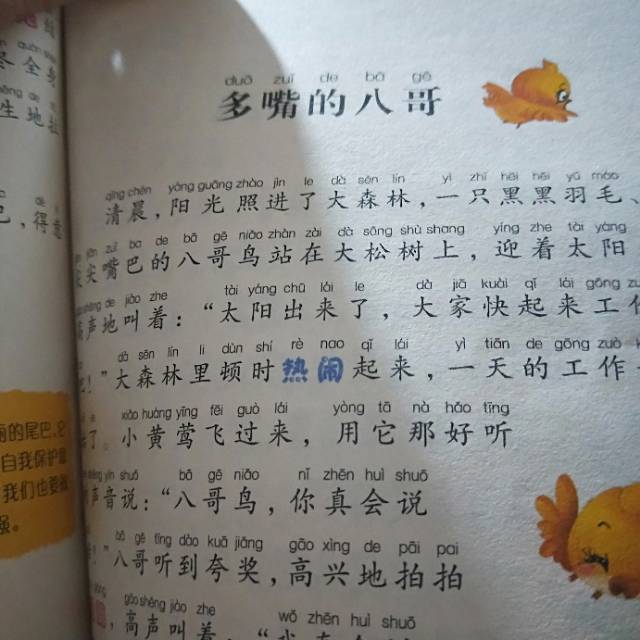 duō zuǐ de bā gē
多嘴的八哥
qīng chén yáng guāng zhào jìn le dà sēn lín yì zhī hēi hēi yǔ máo
清晨，阳光照进了大森林，一只黑黑羽毛、
jiān zuǐ ba de bā gē niǎo zhàn zài dà sōng shù shang yíng zhe tài yáng
尖嘴巴的八哥鸟站在大松树上，迎着太阳
shēng de jiào zhe tài yáng chū lái le dà jiā kuài qǐ lái gōng
声地叫着：“太阳出来了，大家快起来工
dà sēn lín li dùn shí rè nao qǐ lái yì tiān de gōng zuò
吧！”大森林里顿时热闹起来，一天的工作
xiǎo huáng yīng fēi guò lái yòng tā nà hǎo tīng
了。小黄莺飞过来，用它那好听
shēng yīn shuō bā gē niǎo nǐ zhēn huì shuō
声音说：“八哥鸟，你真会说
bā gē tīng dào kuā jiǎng gāo xìng de pāi pai
！”八哥听到夸奖，高兴地拍拍
gāo shēng jiào zhe wǒ zhēn huì shuō
，高声叫着：“
全身
生地
，得意
的尾巴，它
自我保护
我们也要
强。